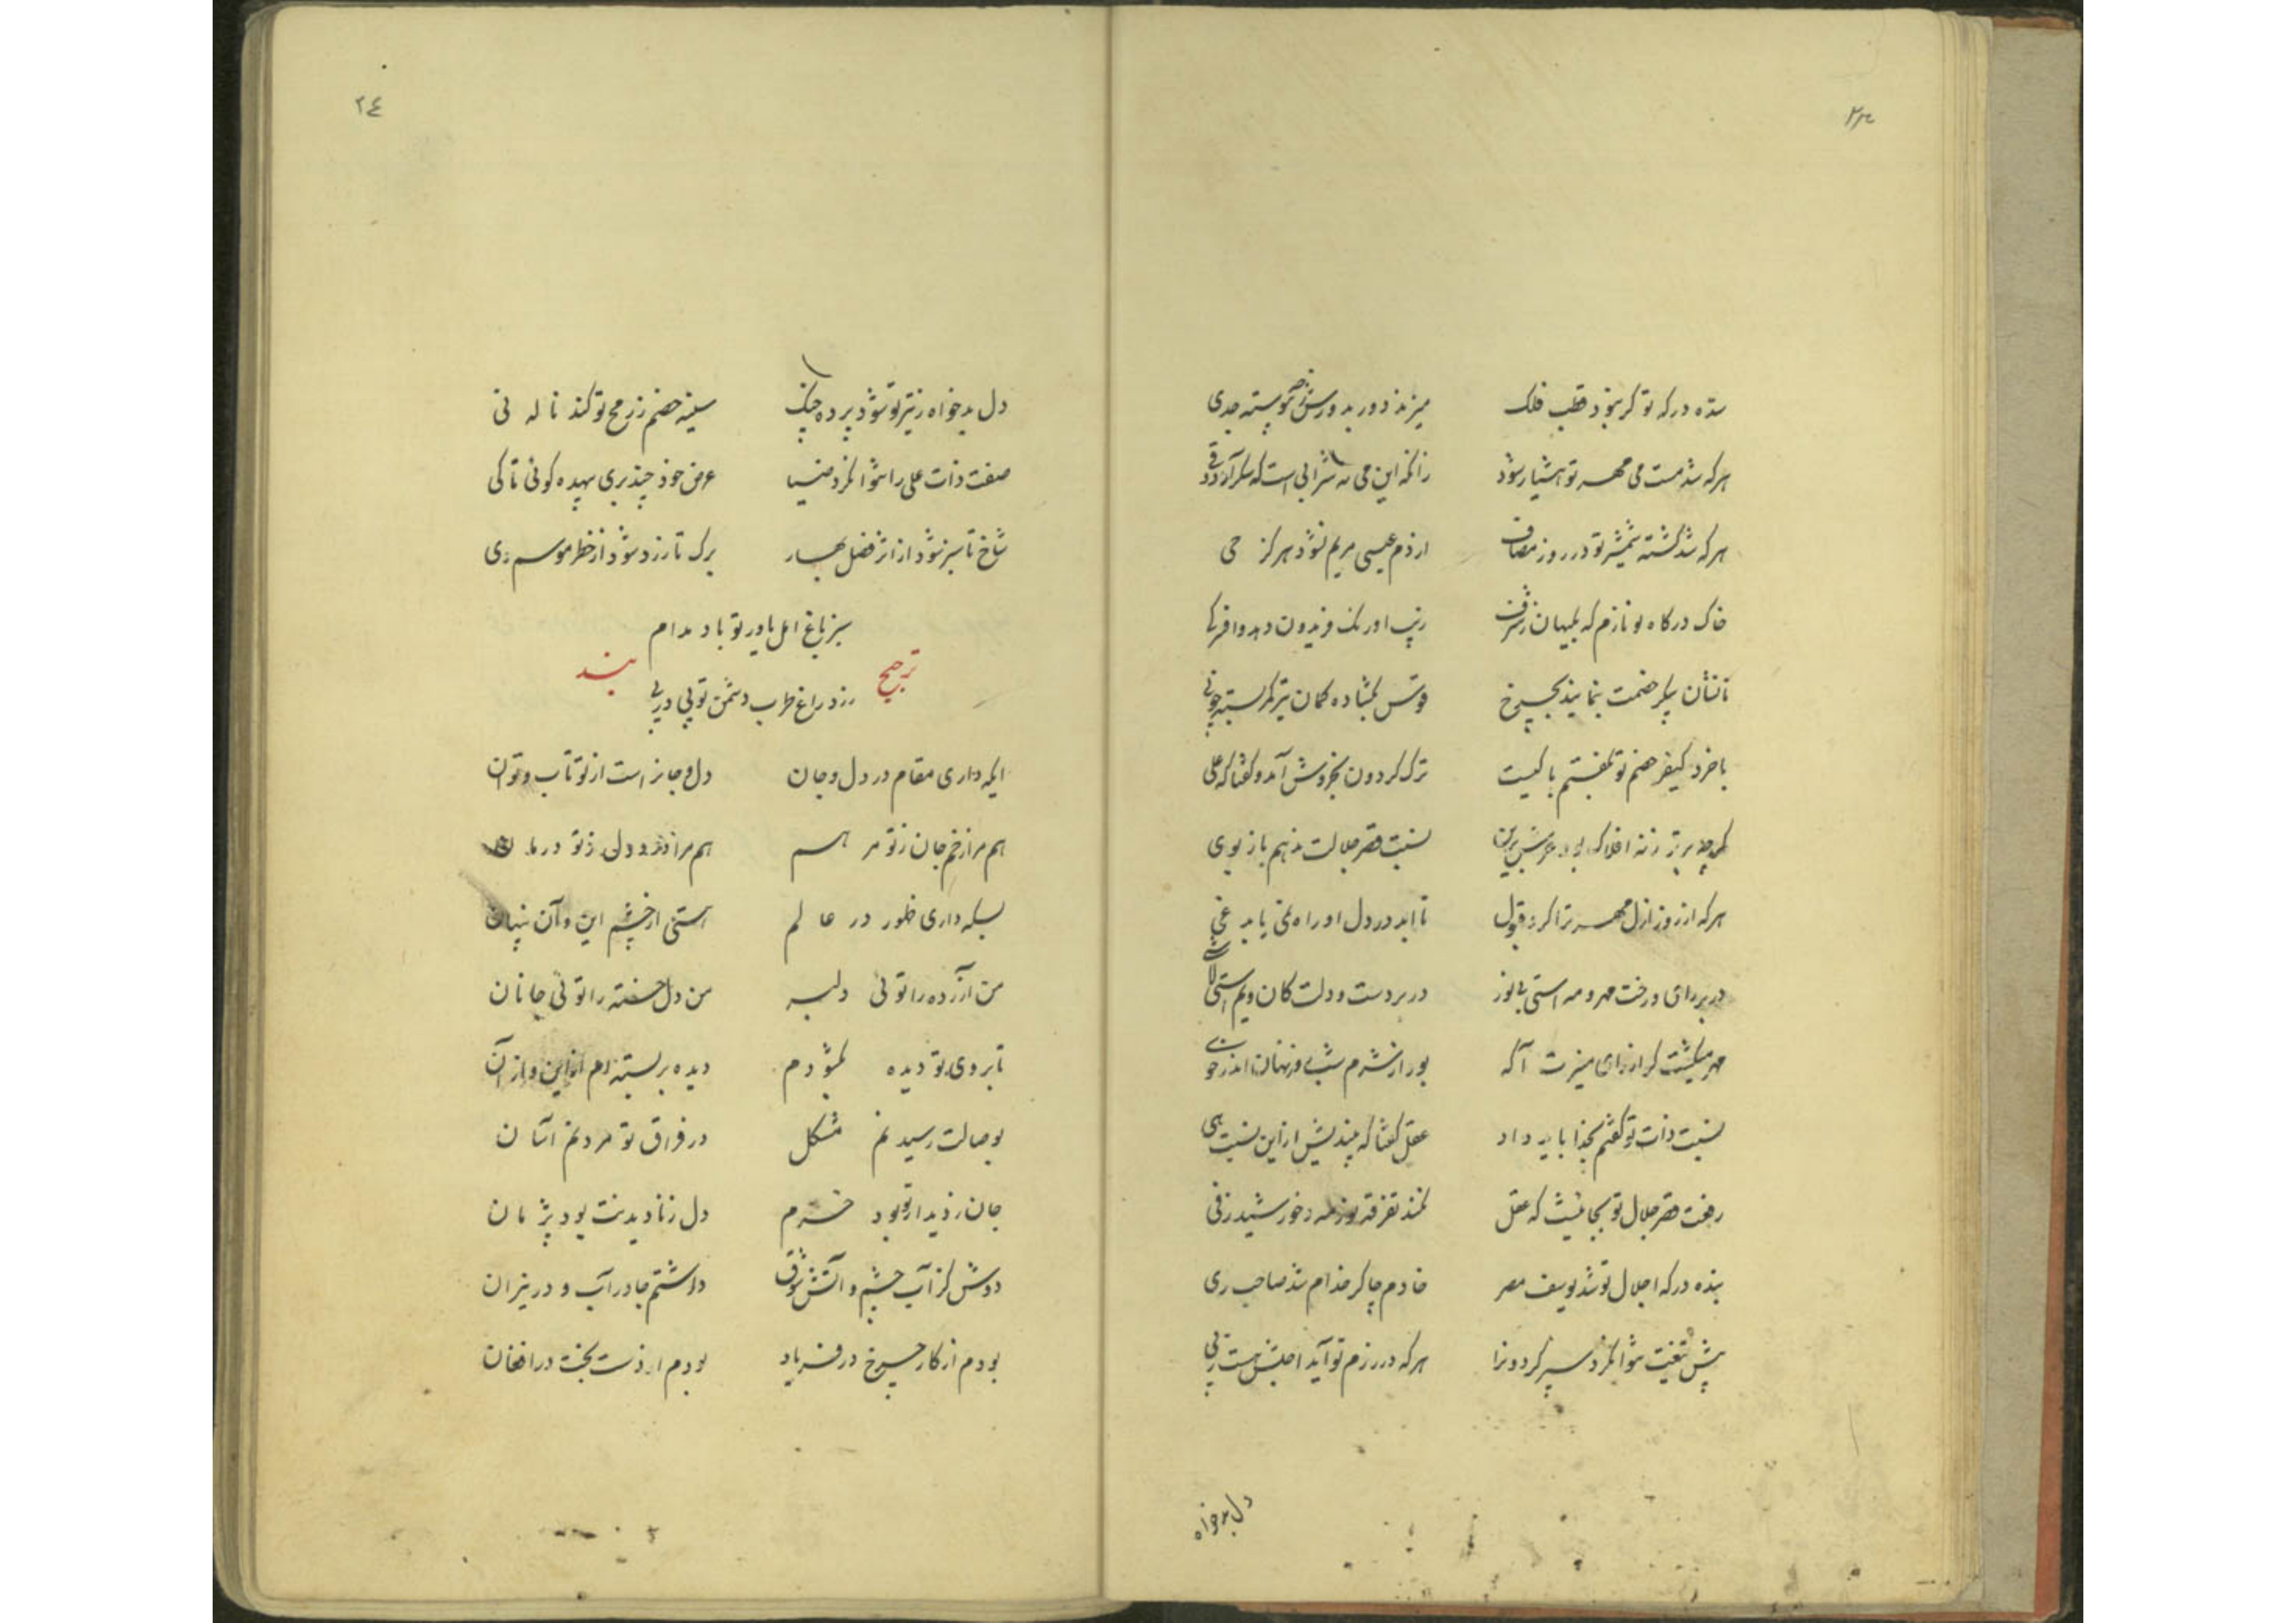 سده درکه تو کر نبود قطب فلک میزند دور بدورش ز چه پیوسته جدی
هرکه شد مست می مهر تو هشیار شود زانکه این می نه شرابی است که سکر آرد و قی
هرکه شد کشته شمشیر تو در روز مصاف از دم عیسی مریم نشود هرکز حی
خاک درکاه تو نازم که بلیهان ز شرف زیب اورنک فریدون دهد و افسر کی
تا نشان پیکر خصمت بنماید بچرخ قوس بکشاده کمان تیر کمر بسته چو نی
با خرد کیفر خصم تو بگفتم با کیست ترک کردون بخروش آمد و کفتا که علی
کرچه برتر ز نه افلاک بود عرش برین نسبت قصر جلالت ندهم باز بوی
هرکه از روز ازل مهر ترا کرد قبول تا ابد در دل او راه نمی یابد غی
در بر رای و رخت مهر و مه استی بی نور در بر دست و دلت کان و یم استی لاشی
مهر میکشت کر از رای منیرت آکه بود از شرم شب و روز نهان اندر خوی
نسبت ذات تو کفتم بخدا باید داد عقل کفتا که بیندیش از این نسبت هی
رفعت قصر جلال تو بجائیست که عقل نکند تفرقه روزنه و خورشید ز فی
بنده درکه اجلال تو شد یوسف مصر خادم چاکر خدام شد صاحب ری
پیش تیغت شوانکرد سپر کردونرا هرکه در رزم تو آید اجلش هست ز پی
دل بدخواه
۲۴
دل بدخواه ز تیر تو شود پرده چنک سینه خصم ز رمح تو کند ناله نی
صفت ذات علی را نتوانکرد ضیا عرض خود چند بری بیهده کوئی تا کی
شاخ تا سبز شود از اثر فصل بهار برک تا زرد شود از خطر موسم دی
سبز باغ امل یاور تو باد مدام
ترجیح بند
زرد راغ طرب دشمن تو پی در پی
ایکه داری مقام در دل و جان دل و جانراست از تو تاب و توان
هم مرا زخم جان ز تو مرهم هم مرا درد دل ز تو درمان
بسکه داری ظهور در عالم استی از چشم این و آن پنهان
من آزرده را توئی دلبر من دل خسته را توئی جانان
تا بروی تو دیده بکشودم دیده بر بسته ام از این و از آن
بوصالت رسیدنم مشکل در فراق تو مردنم آسان
جان ز دیدار تو بود خرم دل ز نادیدنت بود پژمان
دوش کز آب چشم و آتش شوق داشتم جا در آب و در نیران
بودم از کار چرخ در فریاد بودم از دست بخت در افغان